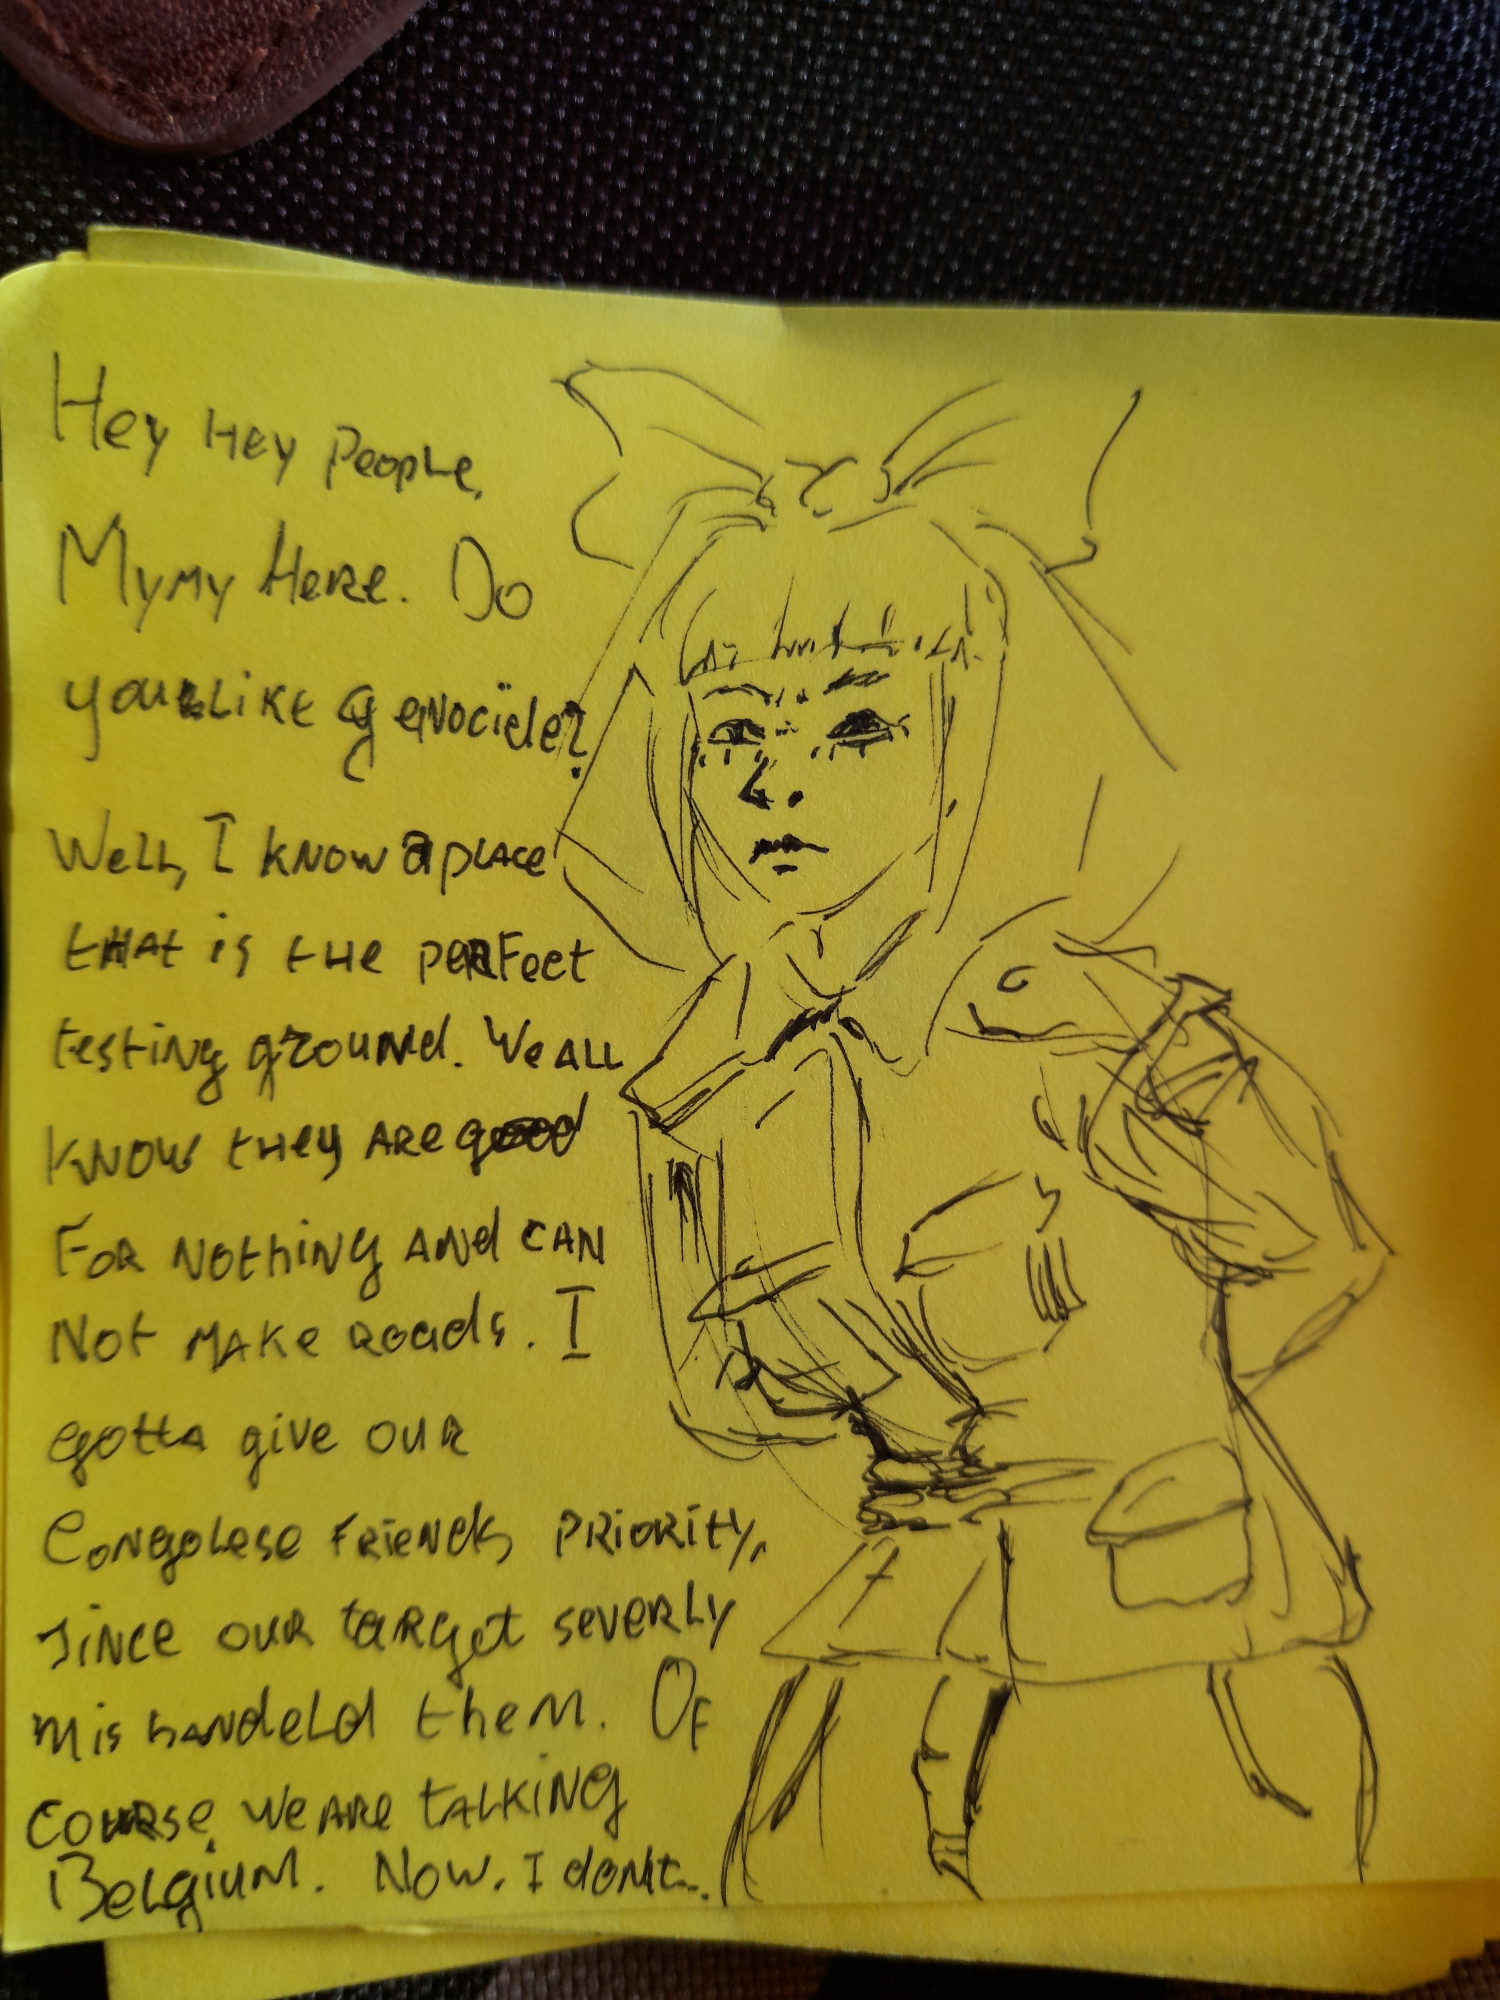 Hey Hey People,
Mymy Here. Do
you like genocide?
Well, I know a place
that is the perfect
testing ground. We all
know they are good
for nothing and can
not make roads. I
gotta give our
Congolese friends priority,
since our target severly
mishandeld them. Of
course we are talking
Belgium. Now, I dont...